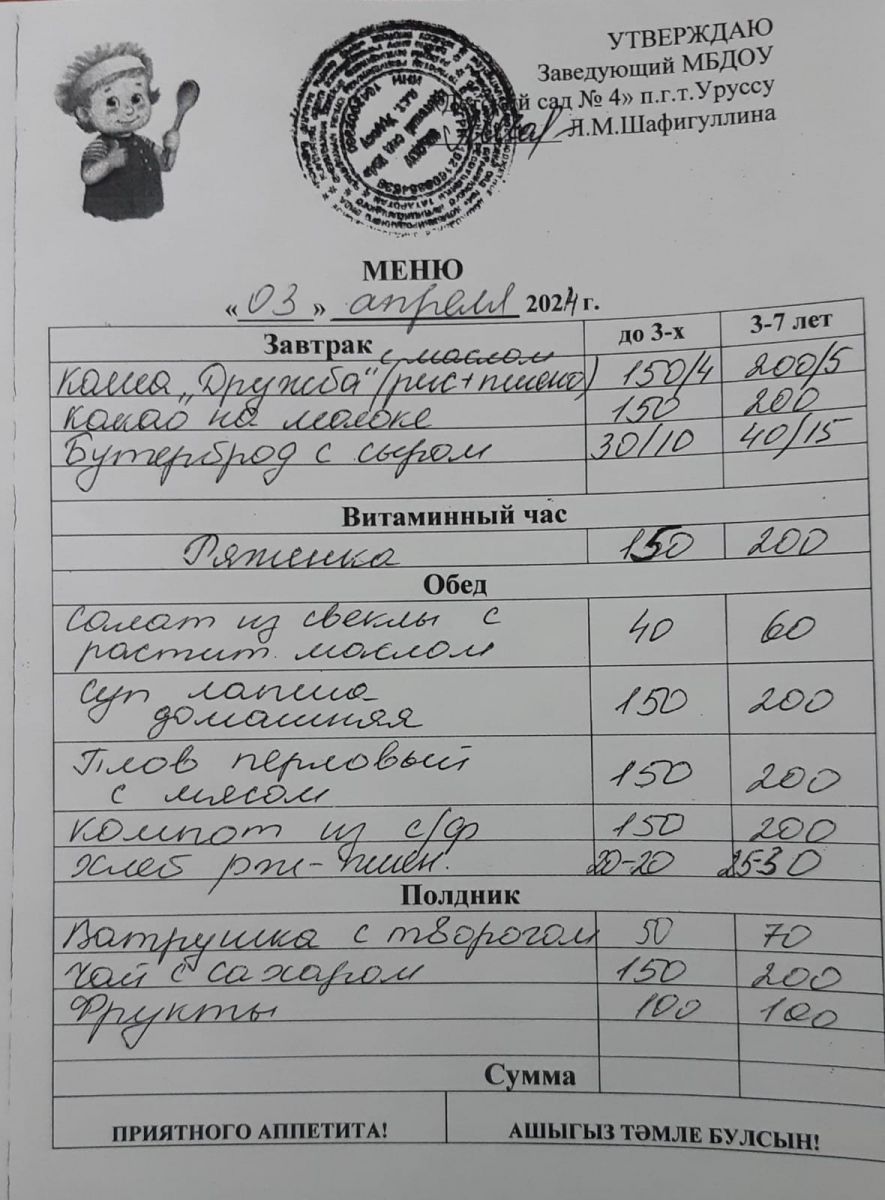 УТВЕРЖДАЮ
Заведующий МБДОУ
«Детский сад № 4» п.г.т.Уруссу
Л.М.Шафигуллина
МЕНЮ
«03» апреля 2024 г.
Завтрак до 3-х 3-7 лет
с маслом
Каша „Дружба“ (рис+пшено) 150/4 200/5
Какао на молоке 150 200
Бутерброд с сыром 30/10 40/15
Витаминный час
Ряженка 150 200
Обед
Салат из свеклы с
растит. маслом 40 60
Суп лапша
домашняя 150 200
Плов перловый
с мясом 150 200
Компот из с/ф 150 200
Хлеб рж-пшен. 20-20 25-30
Полдник
Ватрушка с творогом 50 70
Чай с сахаром 150 200
Фрукты 100 100
Сумма
ПРИЯТНОГО АППЕТИТА! АШЫГЫЗ ТӘМЛЕ БУЛСЫН!